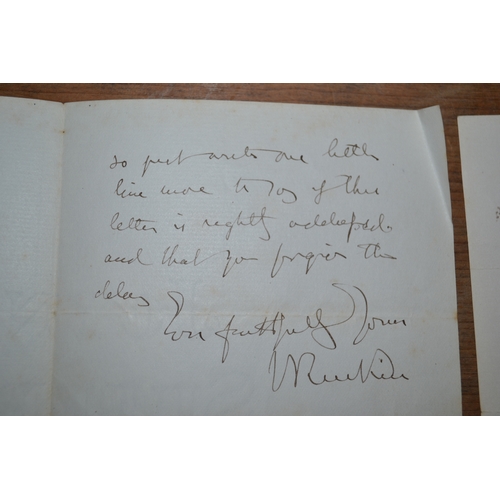 so just write one little
line more to say if this
letter is rightly addressed.
and that you forgive the
delay
Ever faithfully Yours
J Ruskin